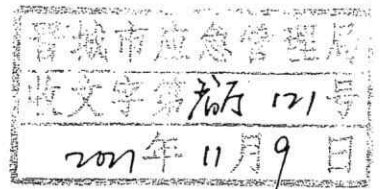 晋城市应急管理局
收文字第 121号
2021年11月9日